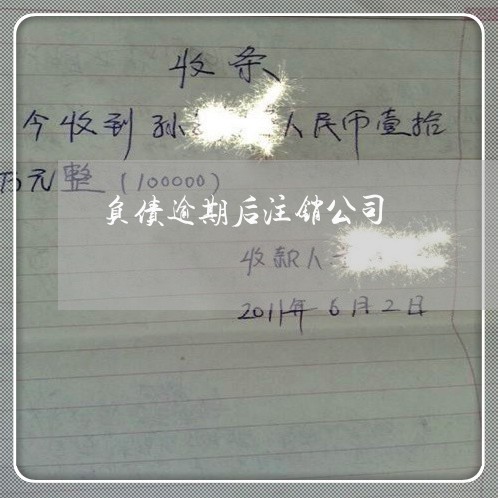 收条
今收到孙 人民币壹拾
万元整（100000）
负债逾期后注销公司
收款人
2011年6月2日